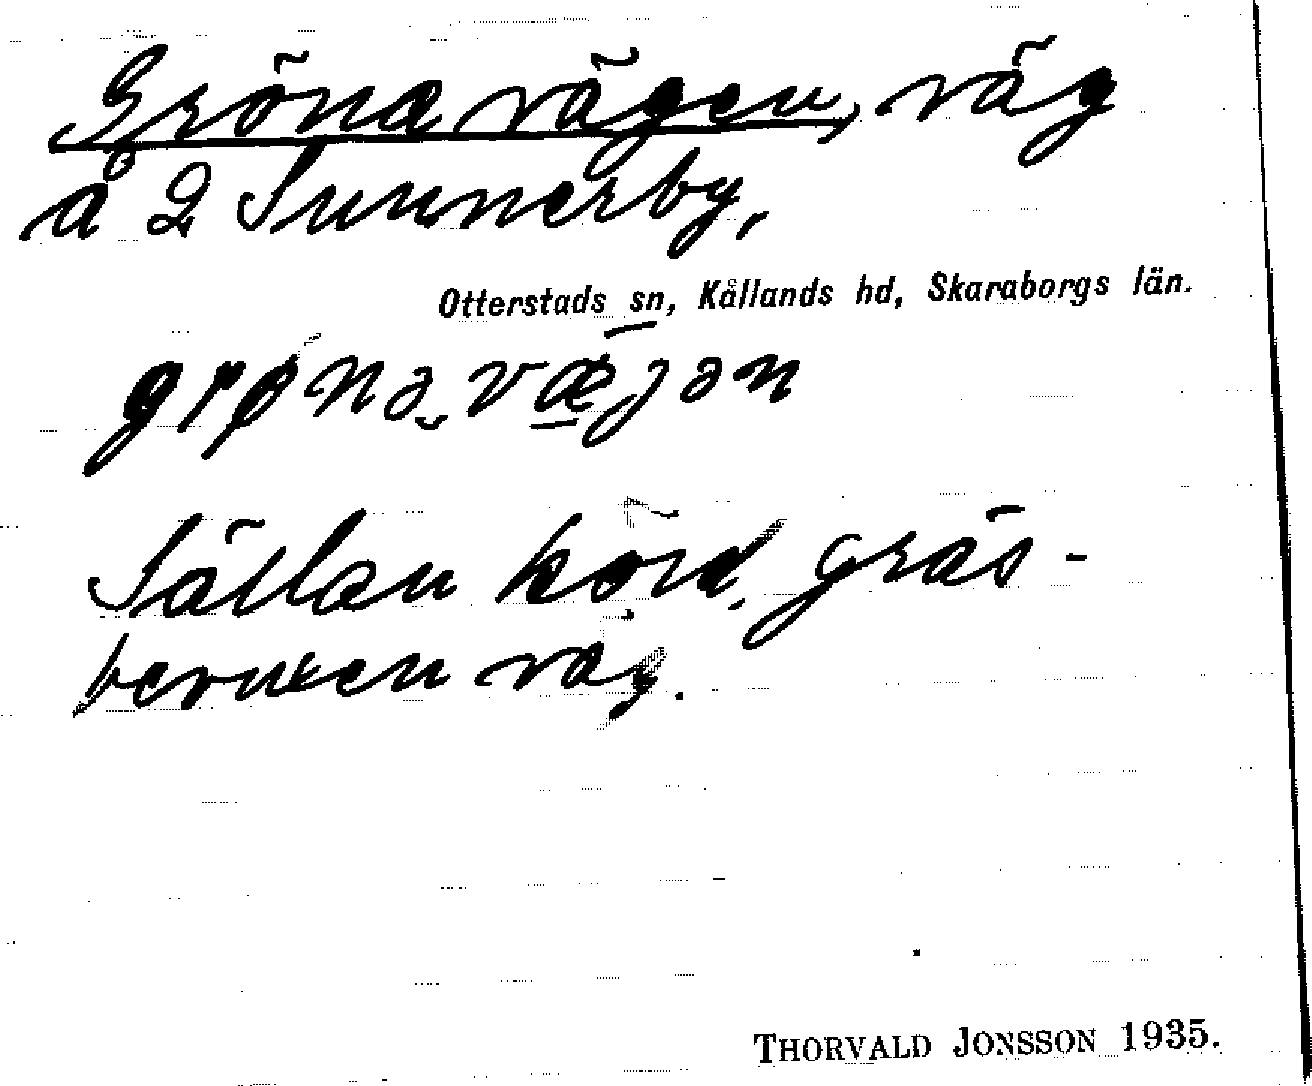 Gröna vägen, väg
å 2 Sunnerby,
Otterstads sn, Kållands hd, Skaraborgs län.
grǿnə‿vǣ̲jən
Sällan körd, gräs-
bevuxen väg.
THORVALD JONSSON 1935.